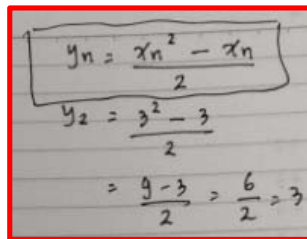 yn = (xn² - xn) / 2
y2 = (3² - 3) / 2
= (9 - 3) / 2 = 6 / 2 = 3